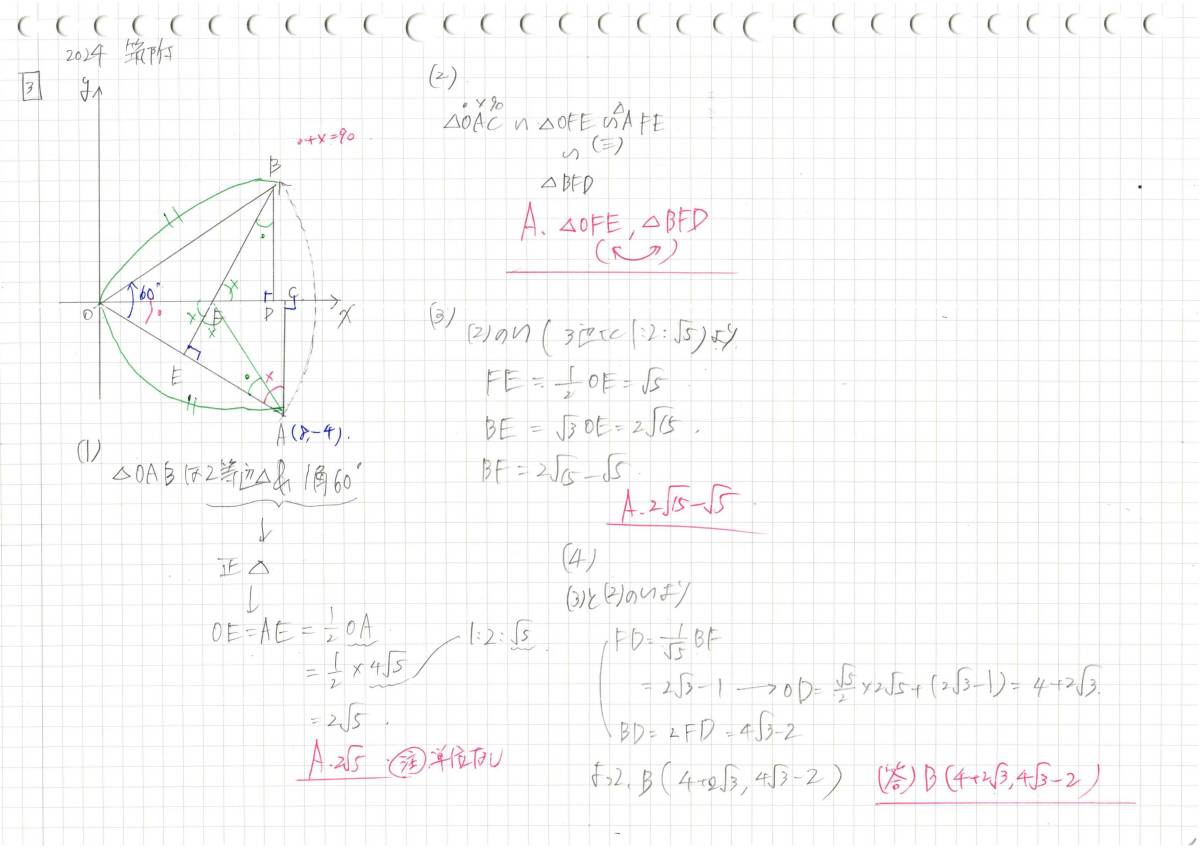 2024 筑附
3
y
・+x=90
B
O
60°
x
x
F
D
C
x
E
x
A(8,-4).
(1)
△OABは2等辺△& 1角60°
↓
正△
↓
OE=AE=1/2 OA
=1/2×4√5
1:2:√5
=2√5.
A.2√5 注)単位なし
(2)
・x90
△OAC∽△OFE∽△AFE
(≡)
∽
△BFD
A. △OFE, △BFD
(3)
(2)の∽(3辺比1:2:√5)より
FE=1/2 OE=√5
BE=√3OE=2√15.
BF=2√15-√5.
A.2√15-√5
(4)
(3)と(2)の∽より
FD=1/√5 BF
=2√3-1 → OD=√5/2×2√5+(2√3-1)=4+2√3.
BD=2FD=4√3-2
よって、B(4+2√3,4√3-2) (答)B(4+2√3,4√3-2)